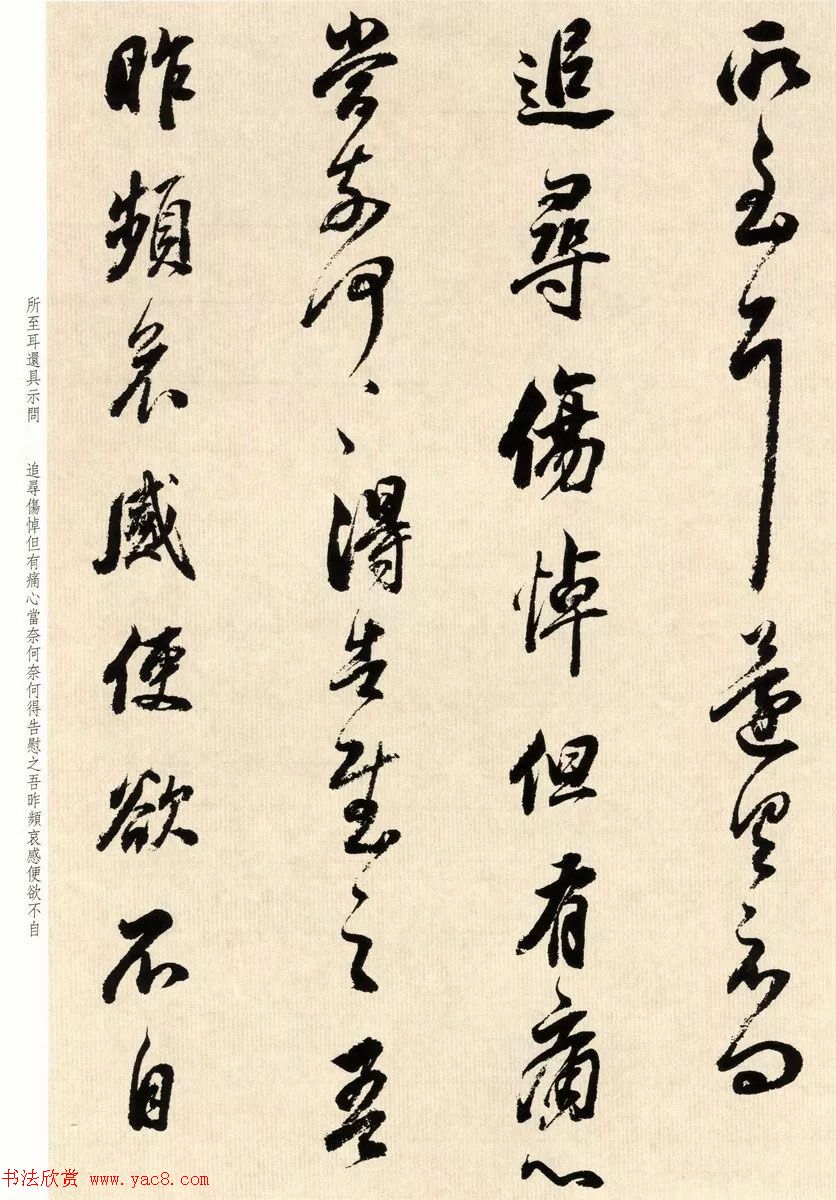 所至耳還具示問
追尋傷悼但有痛心
當奈何〻得告慰之吾
昨頻哀感便欲不自
所至耳還具示問 追尋傷悼但有痛心當奈何奈何得告慰之吾昨頻哀感便欲不自
书法欣赏 www.yac8.com